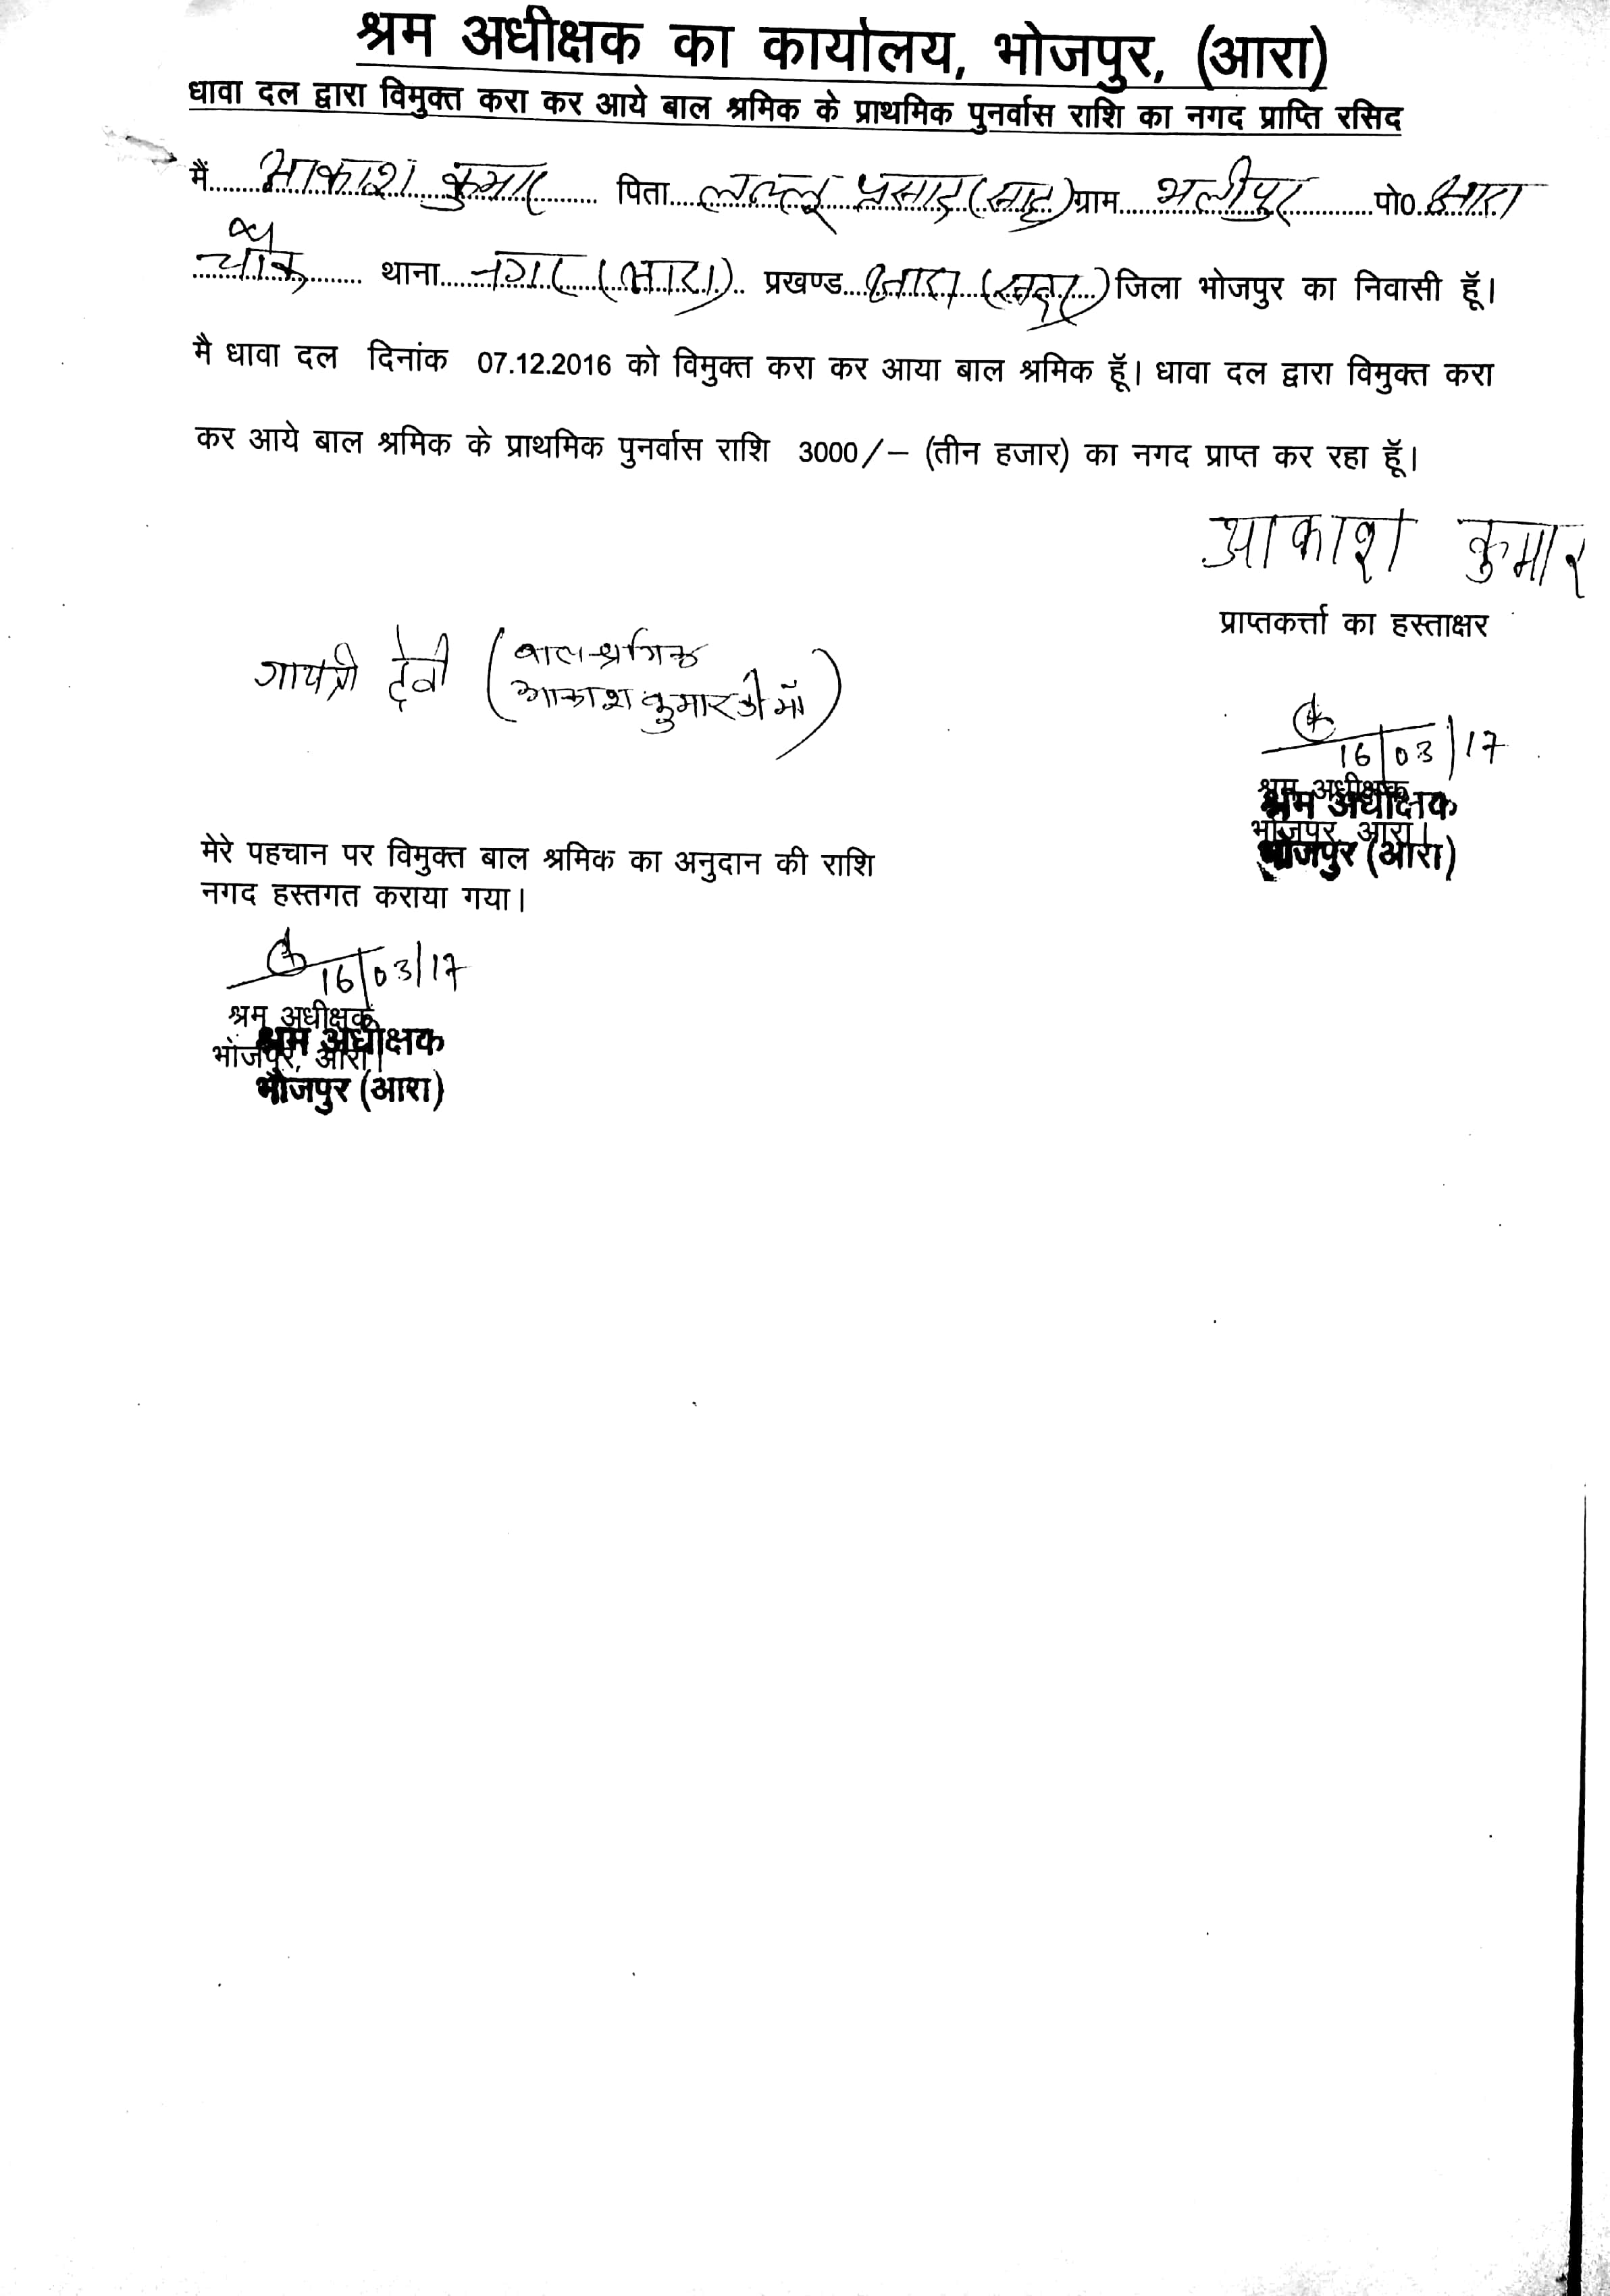 श्रम अधीक्षक का कार्यालय, भोजपुर, (आरा)
धावा दल द्वारा विमुक्त करा कर आये बाल श्रमिक के प्राथमिक पुनर्वास राशि का नगद प्राप्ति रसिद
मैं आकाश कुमार पिता लल्लू प्रसाद (साह) ग्राम भलीपुर पो0 आरा
चौक थाना नगर (आरा) प्रखण्ड आरा (सदर) जिला भोजपुर का निवासी हूॅ।
मै धावा दल दिनांक 07.12.2016 को विमुक्त करा कर आया बाल श्रमिक हूॅ। धावा दल द्वारा विमुक्त करा
कर आये बाल श्रमिक के प्राथमिक पुनर्वास राशि 3000/– (तीन हजार) का नगद प्राप्त कर रहा हूॅ।
आकाश कुमार
प्राप्तकर्त्ता का हस्ताक्षर
गायत्री देवी (बाल श्रमिक
आकाश कुमार की माँ)
16/03/17
श्रम अधीक्षक
भोजपुर, आरा।
श्रम अधीक्षक
भोजपुर (आरा)
मेरे पहचान पर विमुक्त बाल श्रमिक का अनुदान की राशि
नगद हस्तगत कराया गया।
16/03/17
श्रम अधीक्षक
भोजपुर, आरा।
श्रम अधीक्षक
भोजपुर (आरा)